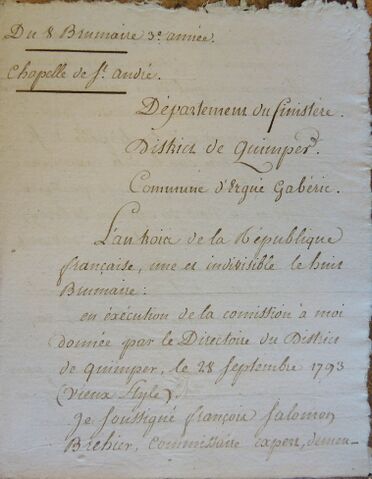 Du 8 Brumaire 3e année.
Chapelle de St. André.
Département du finistère.
District de Quimper.
Commune d'Ergué Gabéric.
L'an trois de la République
française, une et indivisible le huit
Brumaire :
en éxécution de la comission à moi
donnée par le Directoire du District
de quimper, le 28 septembre 1793
(vieux style).
Je soussigné françois salomon
Brehier, commissaire expert, demeu-